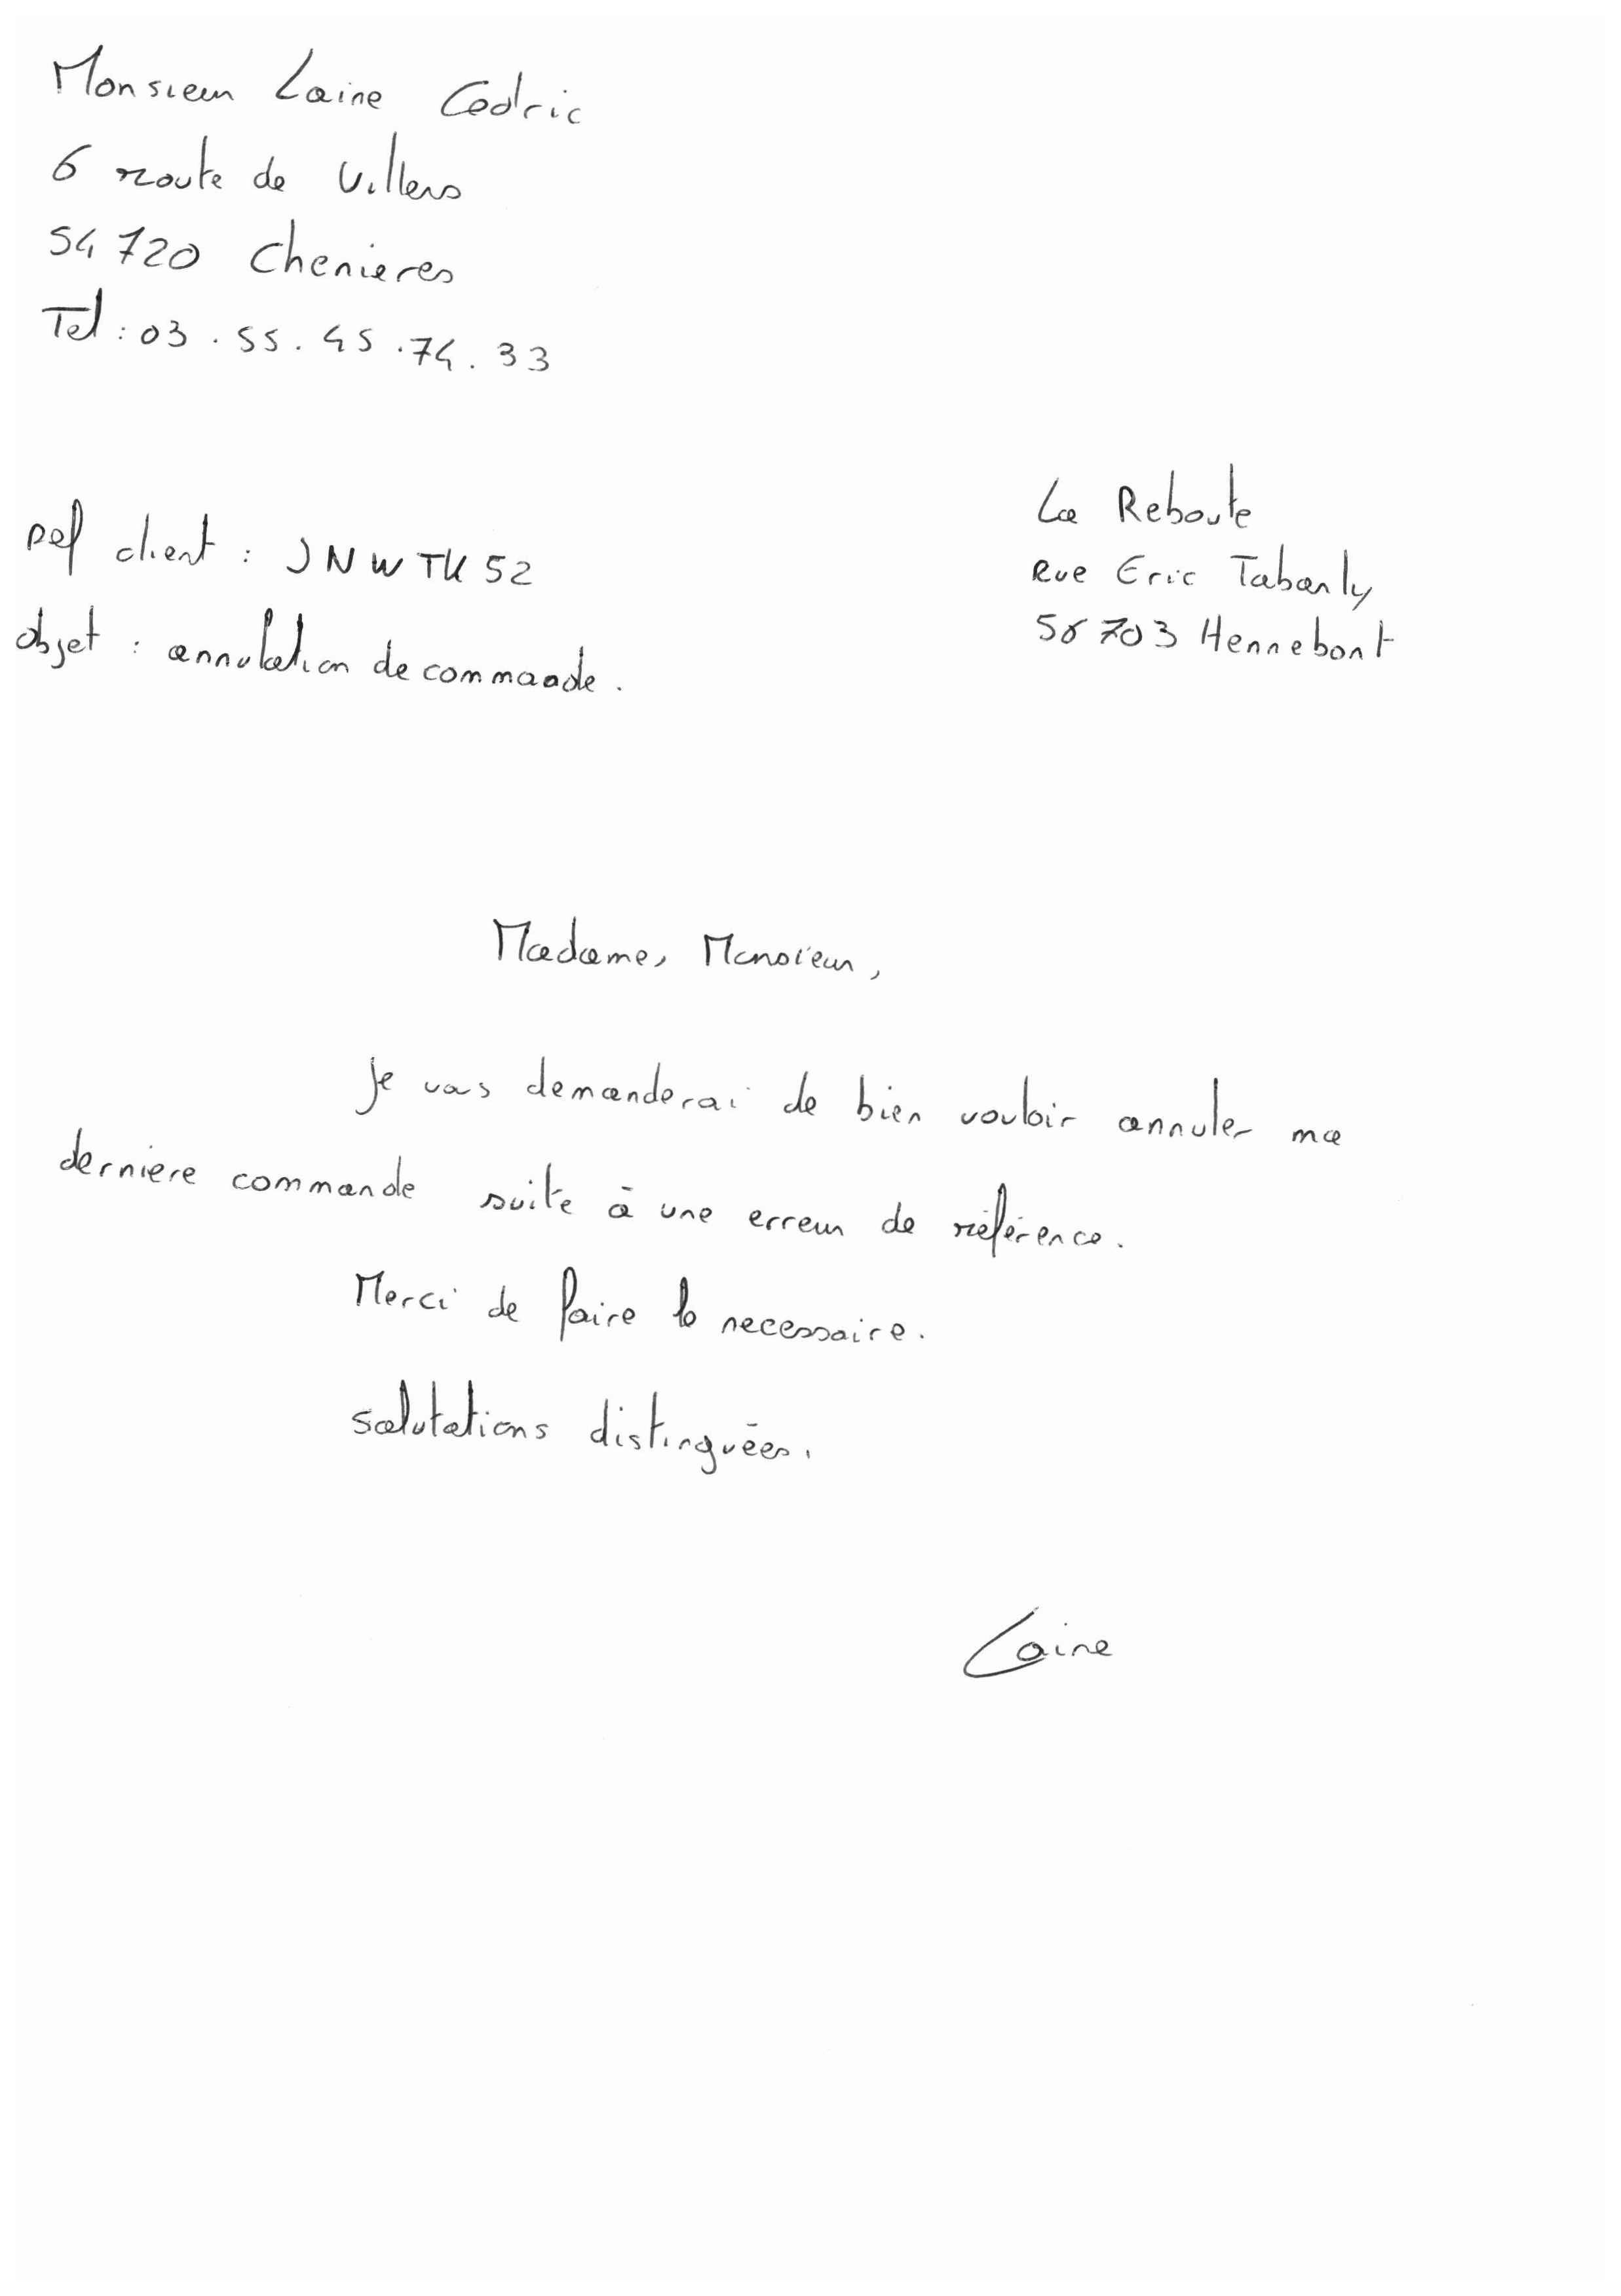 Monsieur Laine Cedric
6 route de Villers
54720 Chenieres
Tel : 03.55.45.74.33
La Reboute
Rue Eric Tabarly
56703 Hennebont
Ref client : JNWTK52
objet : annulation de commande.
Madame, Monsieur,
Je vous demanderai de bien vouloir annuler ma
derniere commande suite à une erreur de référence.
Merci de faire le necessaire.
salutations distinguées.
Laine